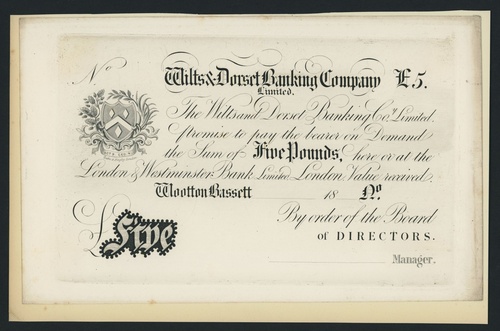 No
Wilts & Dorset Banking Company £5.
Limited.
The Wilts and Dorset Banking Co.y Limited
promise to pay the bearer on Demand
the Sum of Five Pounds, here or at the
London & Westminster Bank Limited London Value received.
Wootton Bassett 18 No.
£ Five
By order of the Board
of DIRECTORS.
Manager.